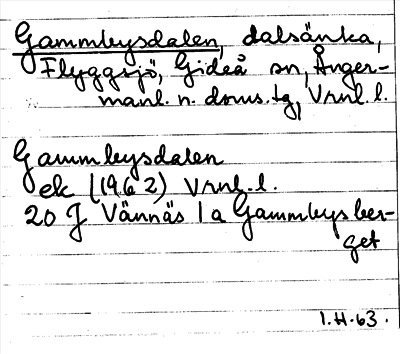 Gammbysdalen, dalsänka,
Flyggsjö, Gideå sn, Ånger-
manl. n. doms. tg, Vrnl. l.
Gammbysdalen
ek (1962) Vrnl. l.
20 J Vännäs 1 a Gammbysber-
get
I.H.63.